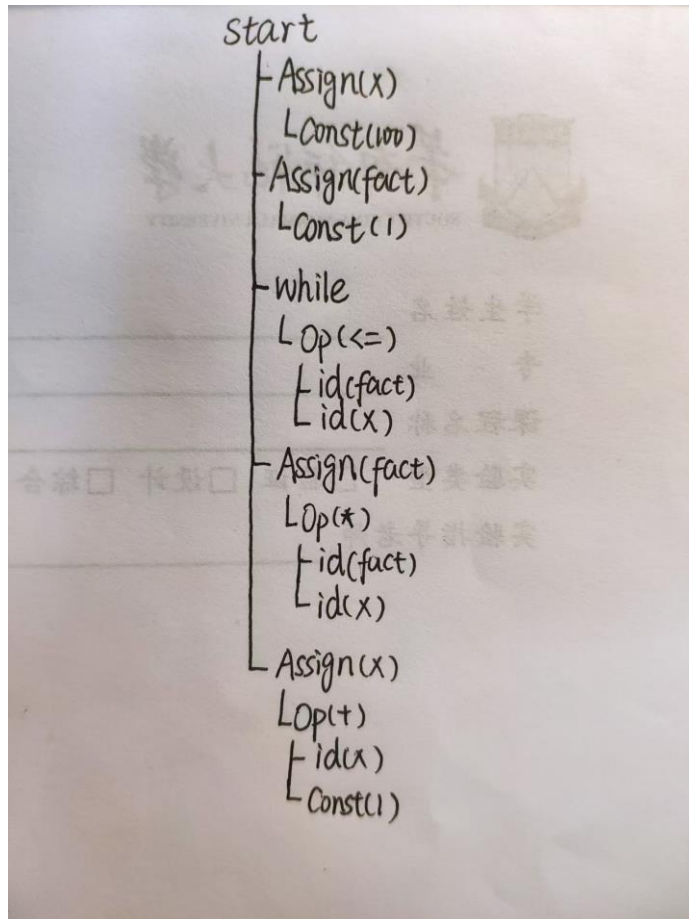 start
Assign(x)
Const(100)
Assign(fact)
Const(1)
while
Op(<=)
id(fact)
id(x)
Assign(fact)
Op(*)
id(fact)
id(x)
Assign(x)
Op(+)
id(x)
Const(1)
学生姓名
专 业
课程名称
设计 综合
实验指导老师